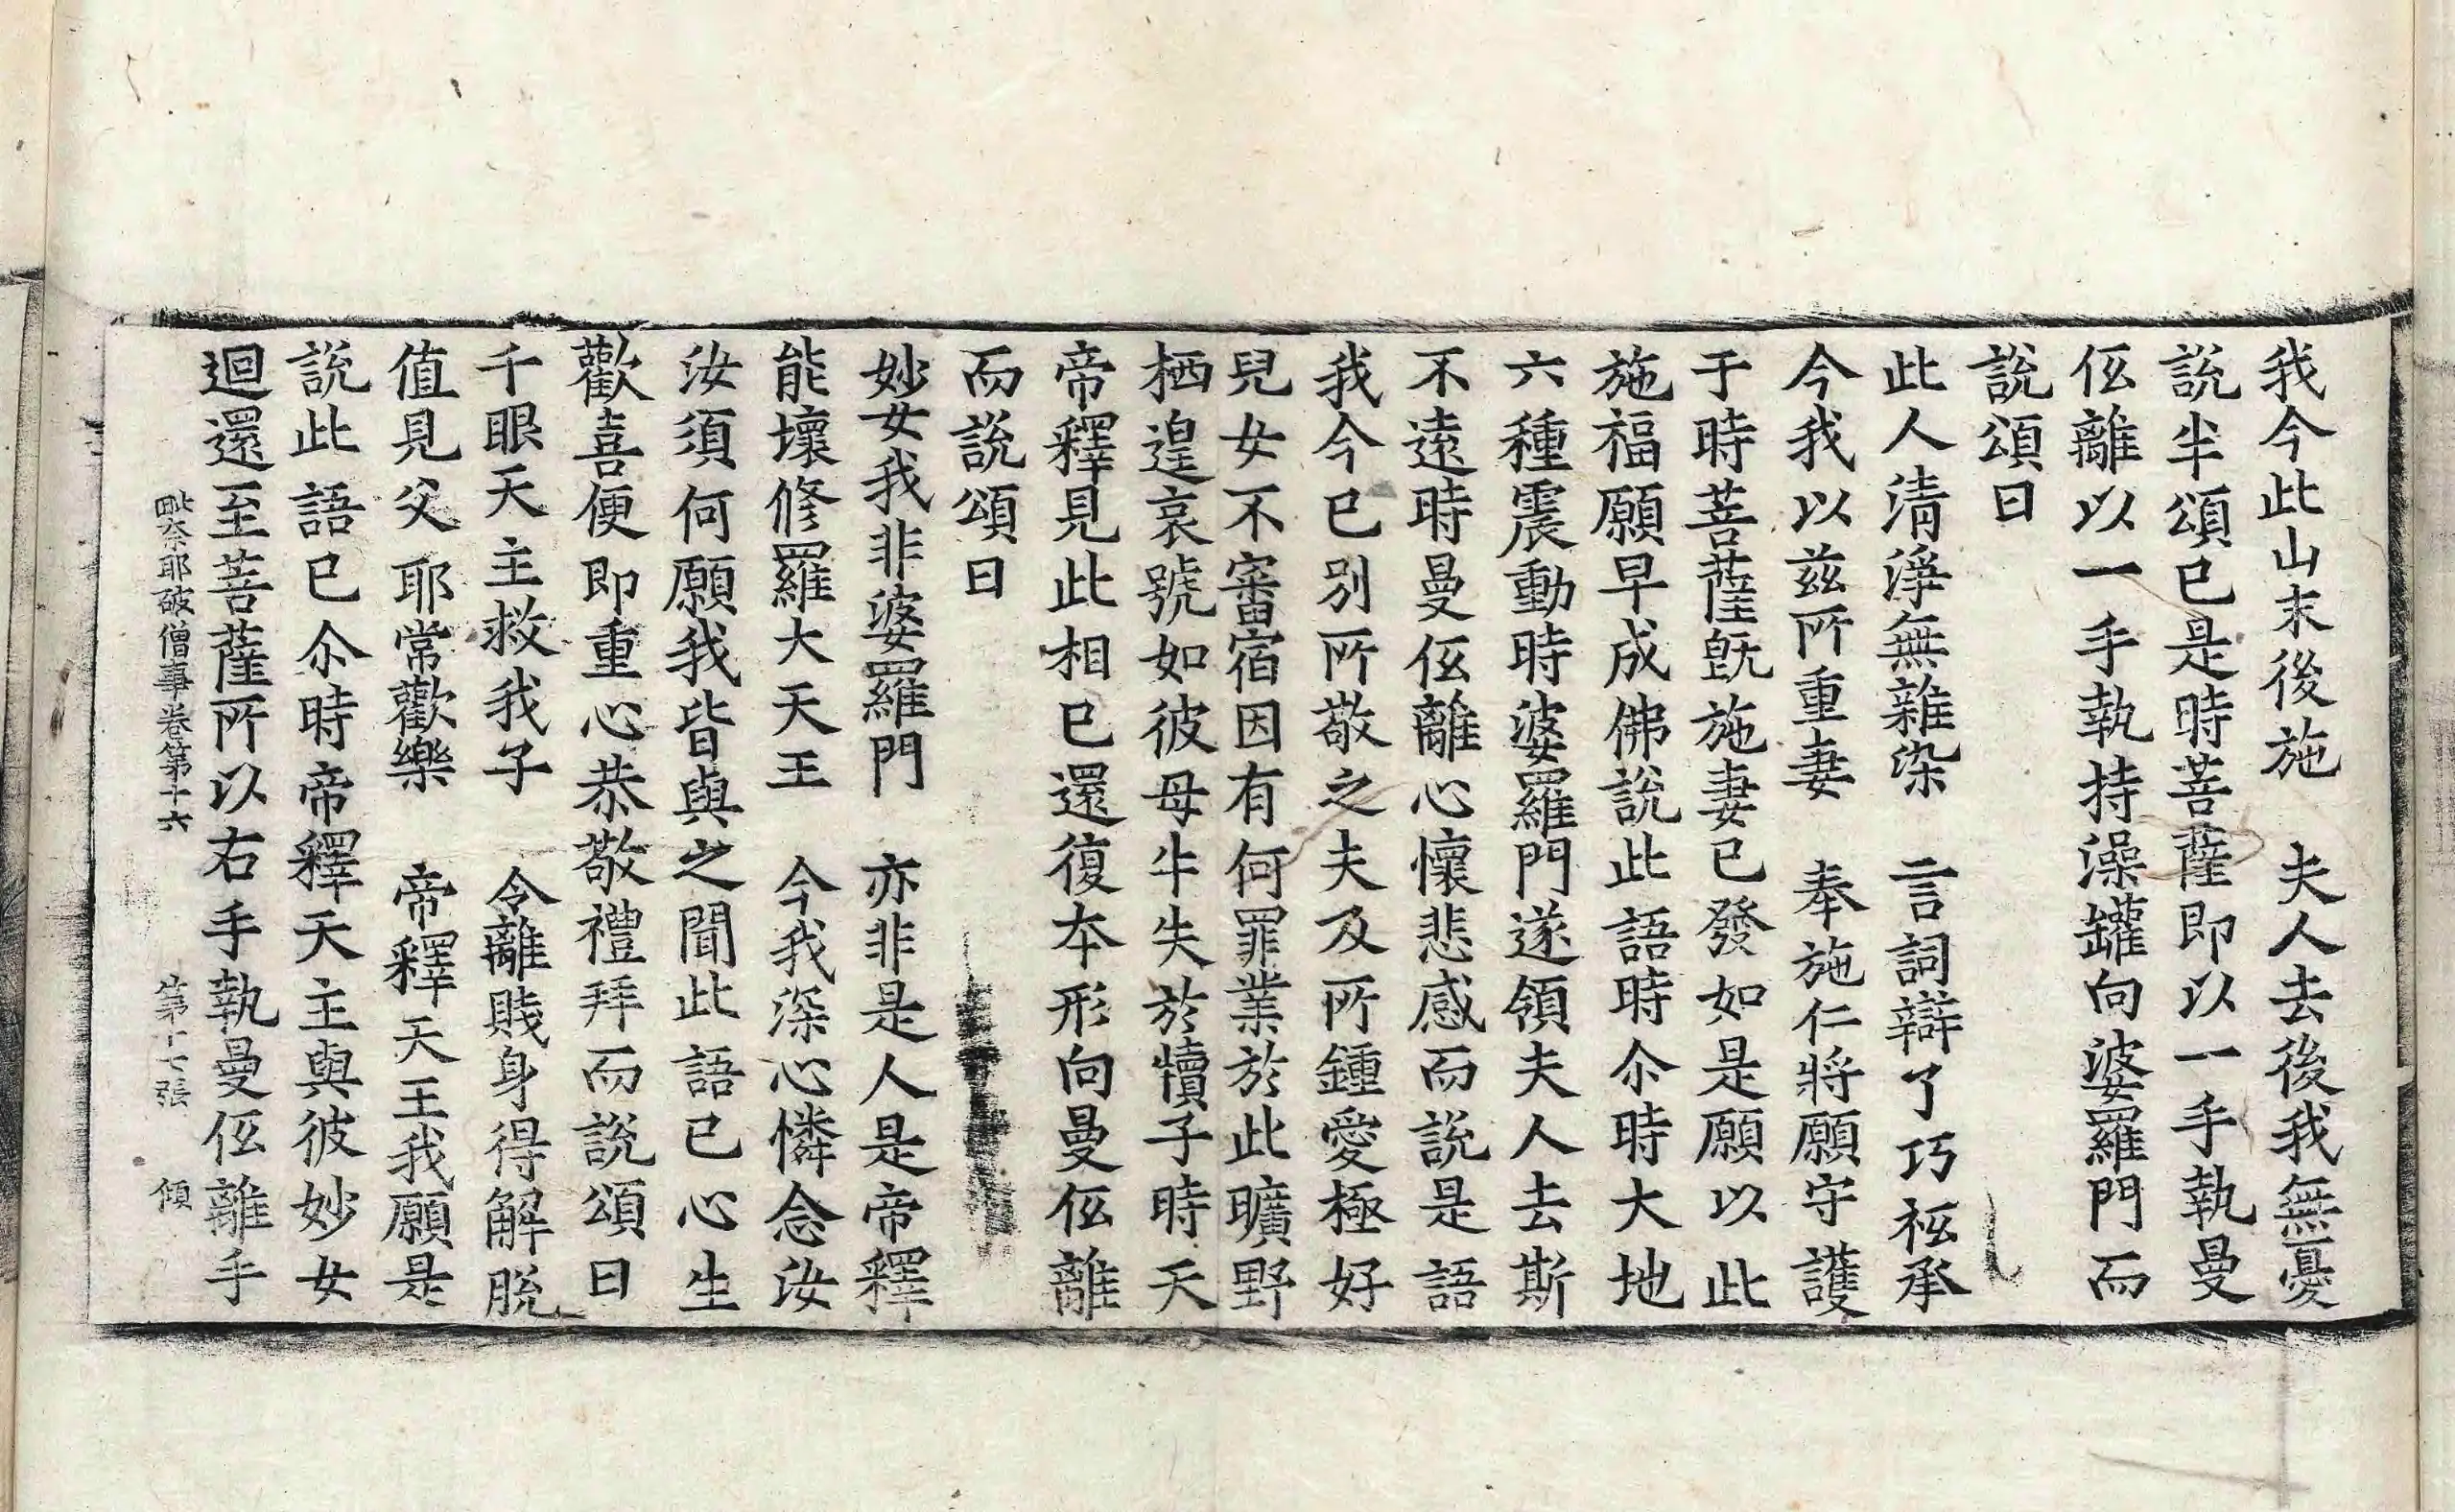 我今此山末後施　夫人去後我無憂
說半頌已是時菩薩即以一手執曼
伭離以一手執持澡罐向婆羅門而
說頌曰
此人清淨無雜染　言詞辯了巧祗承
今我以兹所重妻　奉施仁將願守護
于時菩薩旣施妻已發如是願以此
施福願早成佛說此語時尒時大地
六種震動時婆羅門遂領夫人去斯
不遠時曼伭離心懷悲慼而說是語
我今已別所敬之夫及所鍾愛極好
兒女不審宿因有何罪業於此曠野
栖遑哀號如彼母牛失於犢子時天
帝釋見此相已還復本形向曼伭離
而說頌曰
妙女我非婆羅門　亦非是人是帝釋
能壞修羅大天王　今我深心憐念汝
汝須何願我皆與之聞此語已心生
歡喜便即重心恭敬禮拜而說頌曰
千眼天主救我子　令離賤身得解脫
值見父耶常歡樂　帝釋天王我願是
說此語已尒時帝釋天主與彼妙女
迴還至菩薩所以右手執曼伭離手
毗奈耶破僧事卷第十六　第十七張　傾